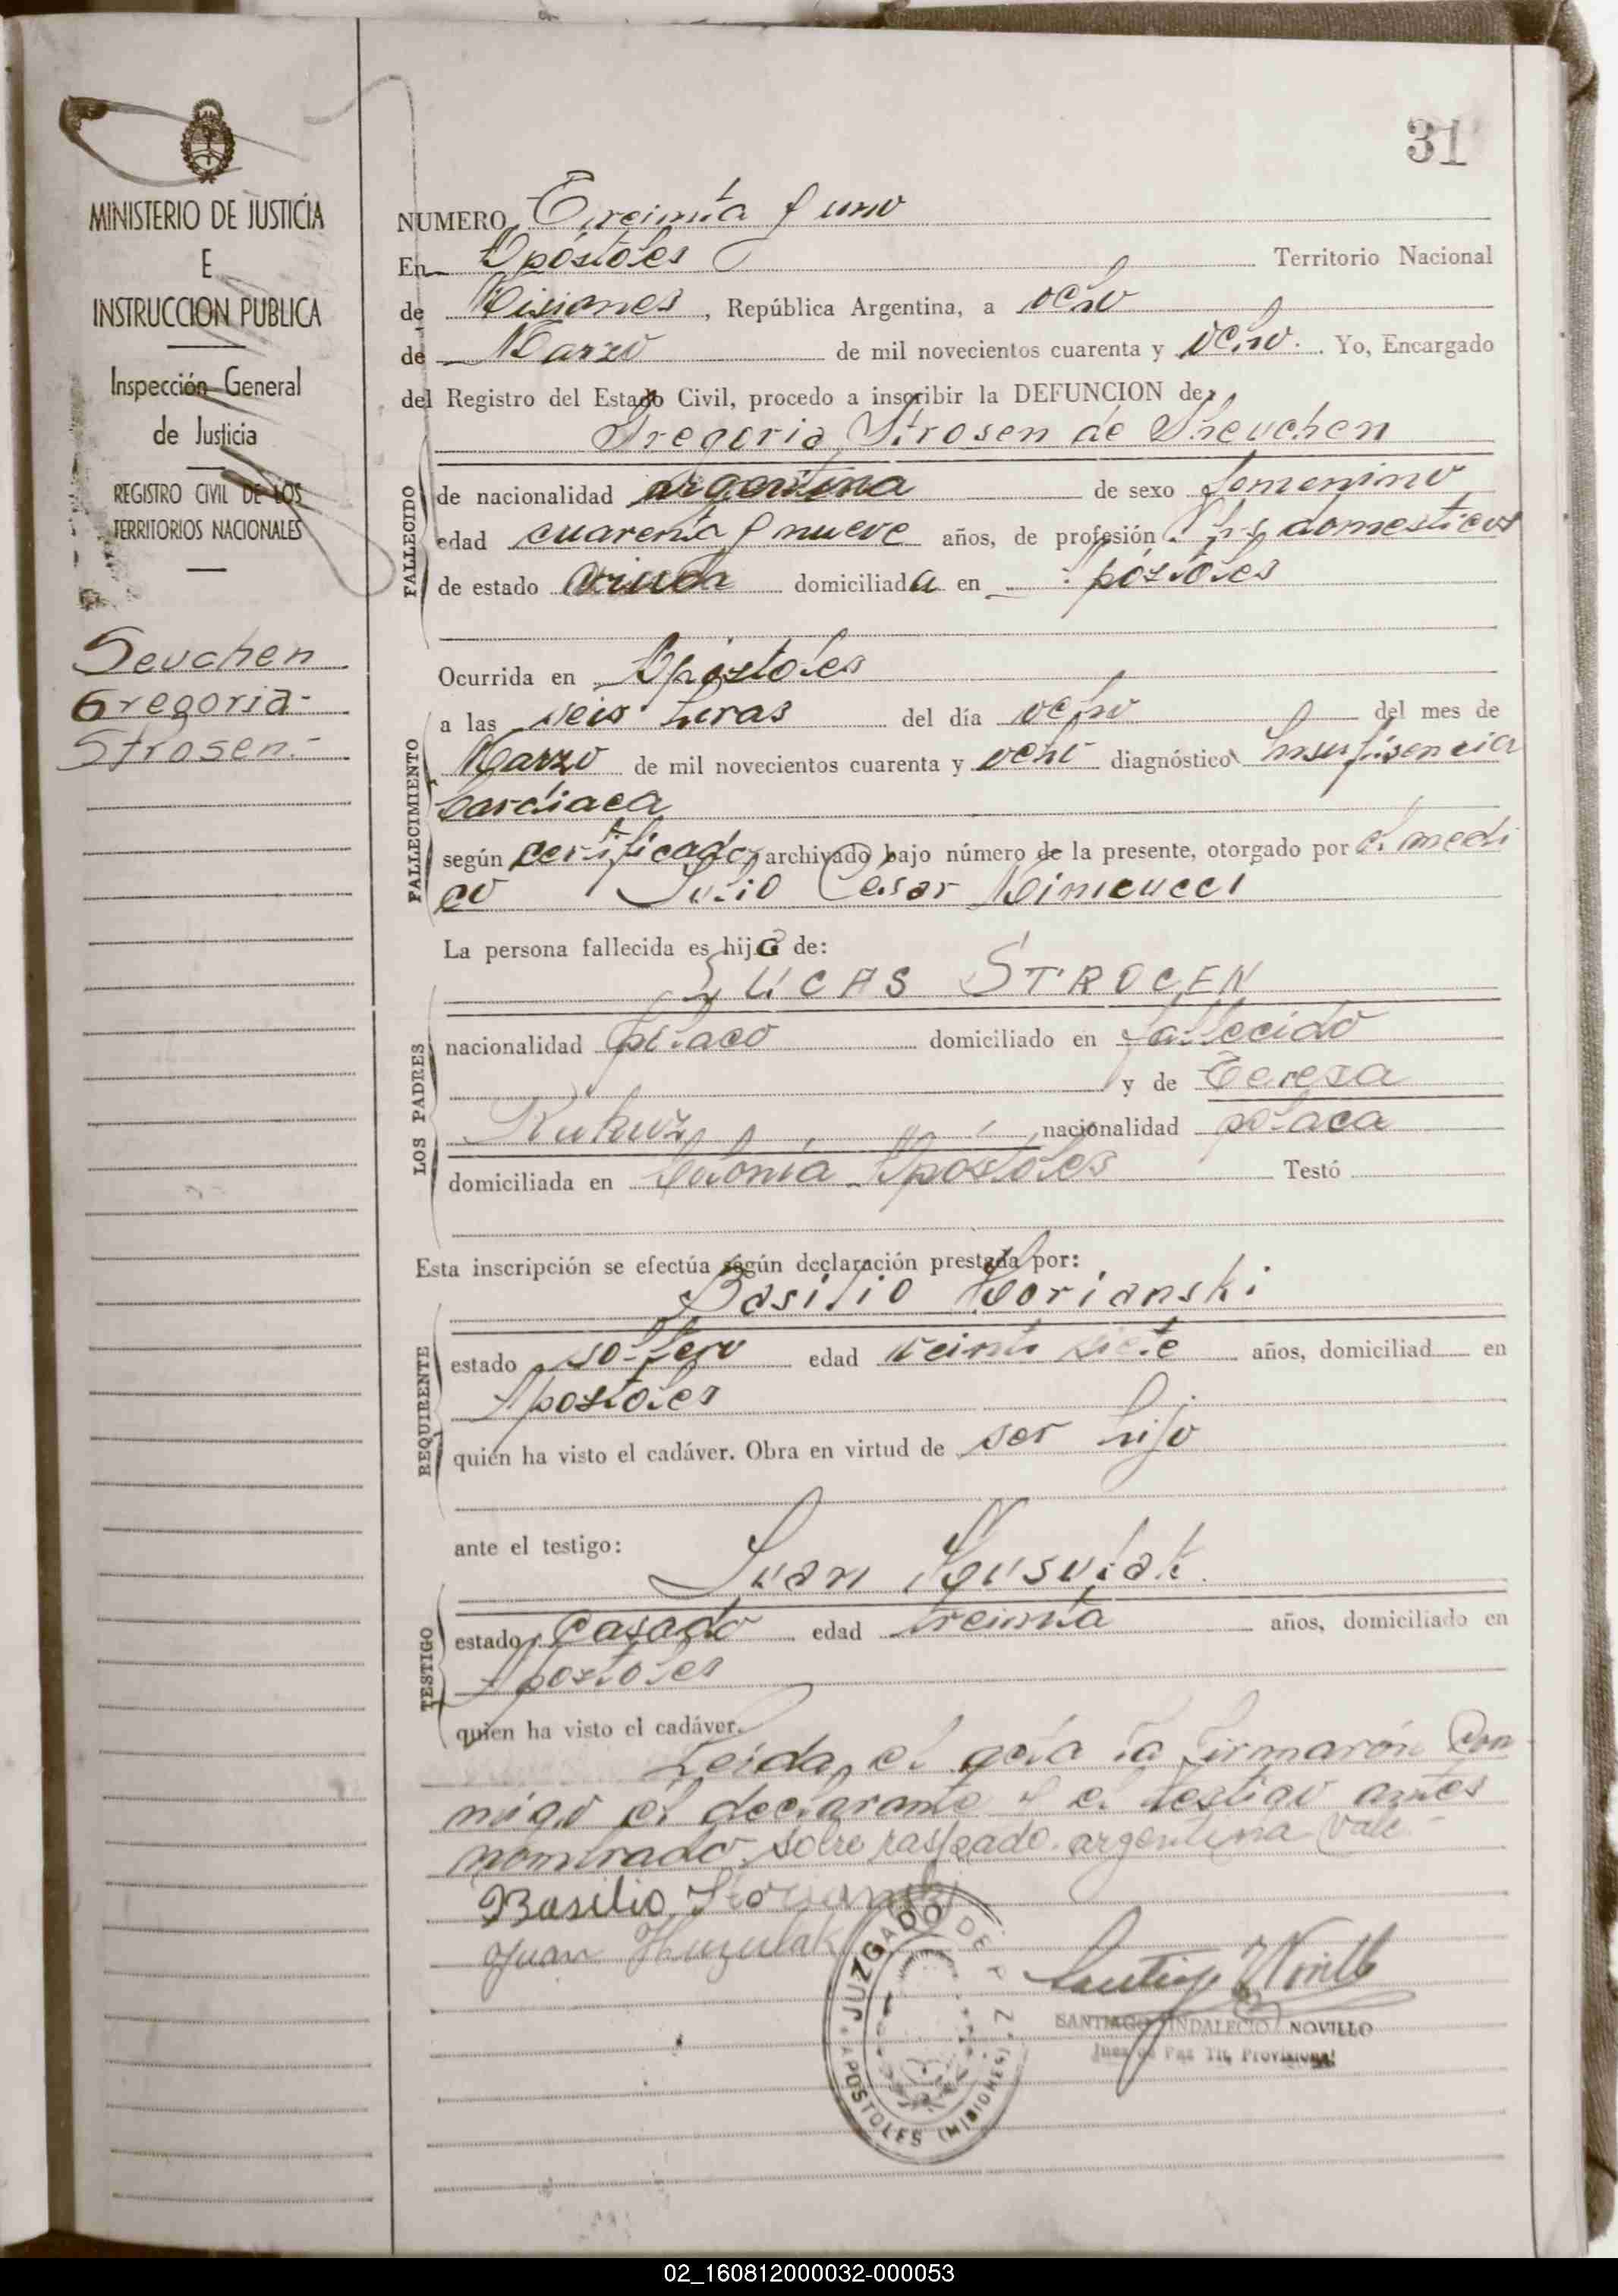 31
MINISTERIO DE JUSTICIA
E
INSTRUCCION PUBLICA
Inspección General
de Justicia
REGISTRO CIVIL DE LOS
TERRITORIOS NACIONALES
Seuchen
Gregoria-
Strosen.-
NUMERO Treinta y uno
En Apóstoles Territorio Nacional
de Misiones, República Argentina, a ocho
de Marzo de mil novecientos cuarenta y ocho. Yo, Encargado
del Registro del Estado Civil, procedo a inscribir la DEFUNCION de,
Gregoria Strosen de Sheuchen
FALLECIDO
de nacionalidad argentina de sexo femenino
edad cuarenta y nueve años, de profesión domesticos
de estado viuda domiciliada en Apóstoles
FALLECIMIENTO
Ocurrida en Apóstoles
a las seis horas del día ocho del mes de
Marzo de mil novecientos cuarenta y ocho diagnóstico Insufisencia
Cardiaca
según certificado, archivado bajo número de la presente, otorgado por el medi
co Julio Cesar Mimeucci
La persona fallecida es hija de:
LOS PADRES
LUCAS STROCEN
nacionalidad polaco domiciliado en fallecido
y de Teresa
nacionalidad polaca
domiciliada en Colonia Apóstoles Testó
Esta inscripción se efectúa según declaración prestada por:
REQUIRENTE
Basilio
estado soltero edad veinti siete años, domiciliad en
Apostoles
quien ha visto el cadáver. Obra en virtud de ser hijo
ante el testigo:
TESTIGO
Juan
estado casado edad treinta años, domiciliado en
Apostoles
quien ha visto el cadáver.
Leida el acta la firmaron con
migo el declarante y el testigo antes
nombrado. sobre raspado. argentina Vale
Basilio
Juan Huzulak
JUZGADO DE PAZ
APOSTOLES (MISIONES)
SANTIAGO INDALECIO NOVILLO
Juez de Paz Tit. Provisional
02_160812000032-000053